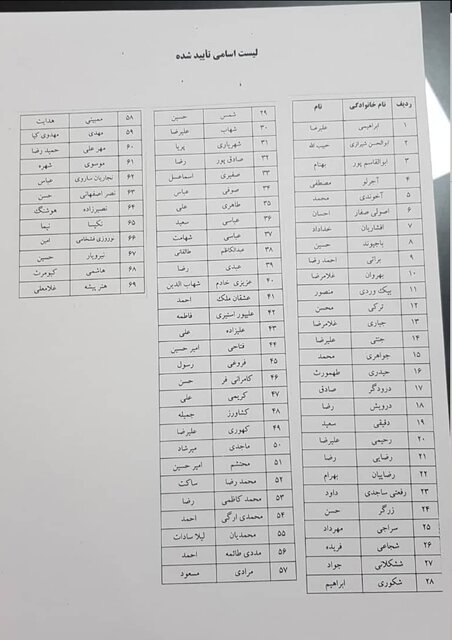 لیست اسامی تأیید شده
ردیف نام خانوادگی نام
۱ ابراهیمی علیرضا
۲ ابوالحسن شیرازی حبیب الله
۳ ابوالقاسم پور بهنام
۴ آجرلو مصطفی
۵ آخوندی محمد
۶ اصولی صفار احسان
۷ افشاریان خداداد
۸ باجیوند حسین
۹ براتی احمد رضا
۱۰ بهروان غلامرضا
۱۱ بیک وردی منصور
۱۲ ترکی محسن
۱۳ جباری غلامرضا
۱۴ جنتی علیرضا
۱۵ جواهری محمد
۱۶ حیدری طهمورث
۱۷ درودگر صادق
۱۸ درویش رضا
۱۹ دقیقی سعید
۲۰ رحیمی علیرضا
۲۱ رضایی رضا
۲۲ رضاییان بهرام
۲۳ رفعتی ساجدی داود
۲۴ زرگر حسن
۲۵ سراجی مهرداد
۲۶ شجاعی فریده
۲۷ ششکلانی جواد
۲۸ شکوری ابراهیم
۲۹ شمس حسین
۳۰ شهاب علیرضا
۳۱ شهریاری پریا
۳۲ صادق پور رضا
۳۳ صفیری اسماعیل
۳۴ صوفی عباس
۳۵ طاهری علی
۳۶ عباسی سعید
۳۷ عباسی شهامت
۳۸ عبدالکاظم طالقانی
۳۹ عبدی رضا
۴۰ عزیزی خادم شهاب الدین
۴۱ عشقان ملک احمد
۴۲ علیپور استیری فاطمه
۴۳ علیزاده علی
۴۴ فتاحی امیر حسین
۴۵ فروغی رسول
۴۶ کامرانی فر حسن
۴۷ کریمی علی
۴۸ کشاورز جمیله
۴۹ کهوری علیرضا
۵۰ ماجدی میرشاد
۵۱ محتشم امیر حسین
۵۲ محمد رضا ساکت
۵۳ محمد کاظمی رضا
۵۴ محمدی ارگی احمد
۵۵ محمدیان لیلا سادات
۵۶ مددی طائمه احمد
۵۷ مرادی مسعود
۵۸ ممبینی هدایت
۵۹ مهدی مهدوی کیا
۶۰ مهر علی حمید رضا
۶۱ موسوی شهره
۶۲ نجاریان ساروی عباس
۶۳ نصر اصفهانی حسن
۶۴ نصیرزاده هوشنگ
۶۵ نکیسا نیما
۶۶ نوروزی فتحامی امین
۶۷ نیرویار حسین
۶۸ هاشمی کیومرث
۶۹ هنر پیشه غلامعلی